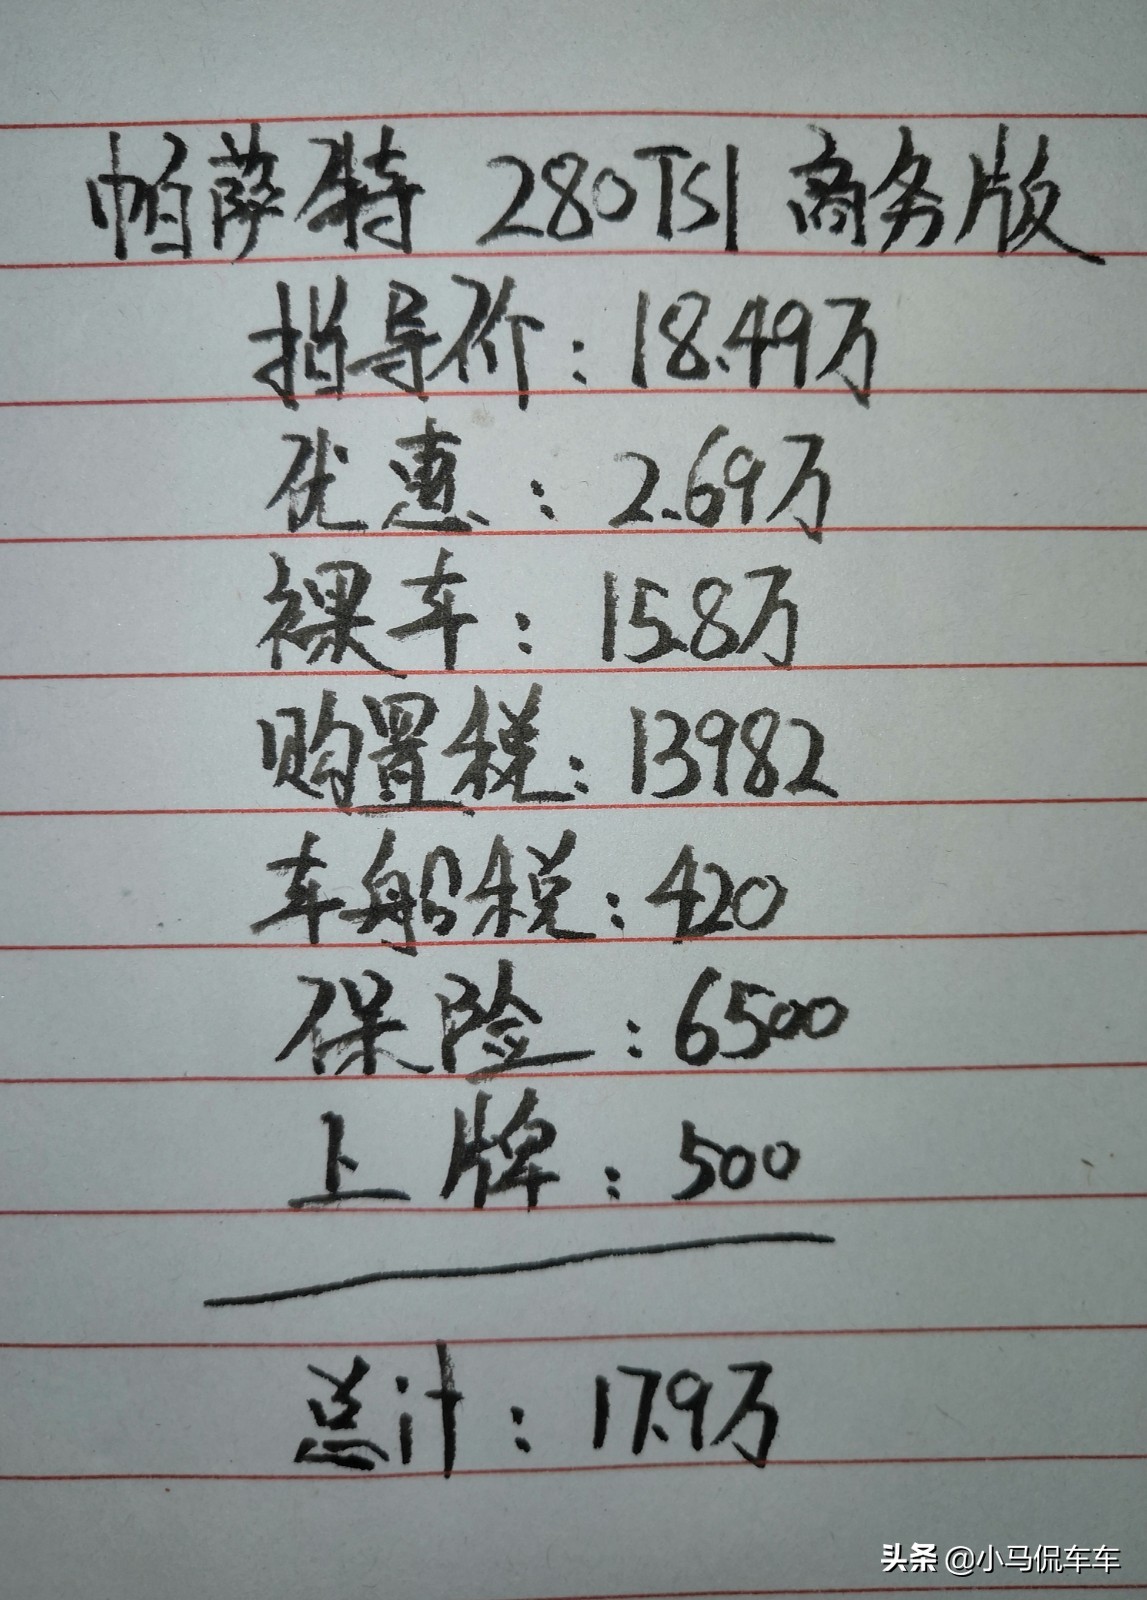 帕萨特 280TSI 商务版
指导价：18.49万
优惠：2.69万
裸车：15.8万
购置税：13982
车船税：420
保险：6500
上牌：500
总计：17.9万
头条 @小马侃车车